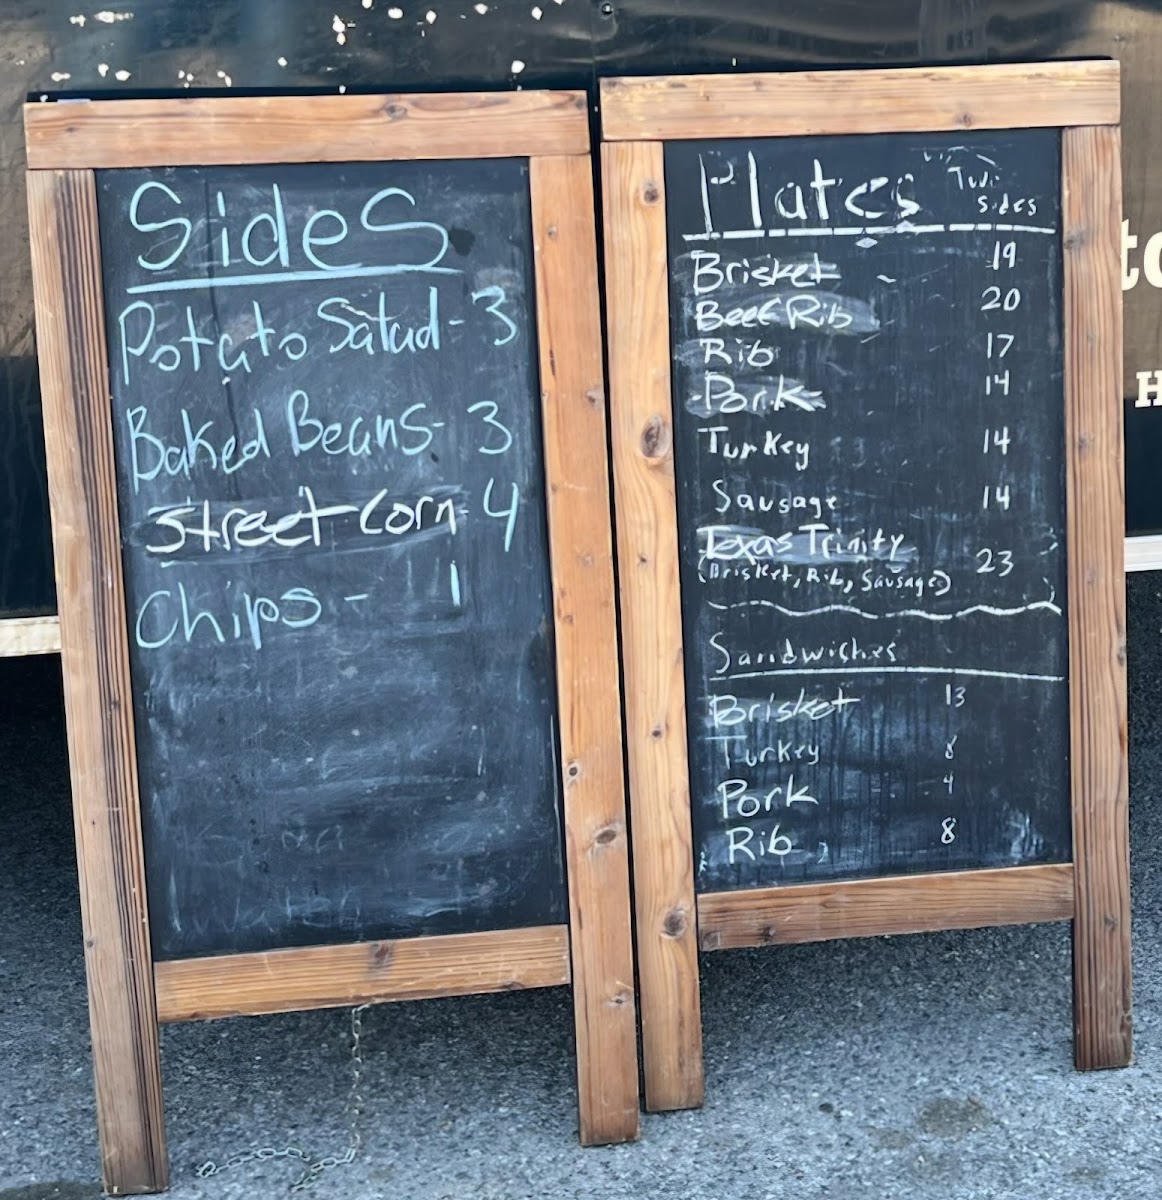 Sides
Potato Salad - 3
Baked Beans - 3
Street Corn - 4
Chips - 1
Plates Two Sides
Brisket - 19
Beef Rib 20
Rib 17
Pork 14
Turkey 14
Sausage 14
Texas Trinity 23
(Brisket, Rib, Sausage)
Sandwiches
Brisket 13
Turkey 8
Pork
Rib 8
to
H